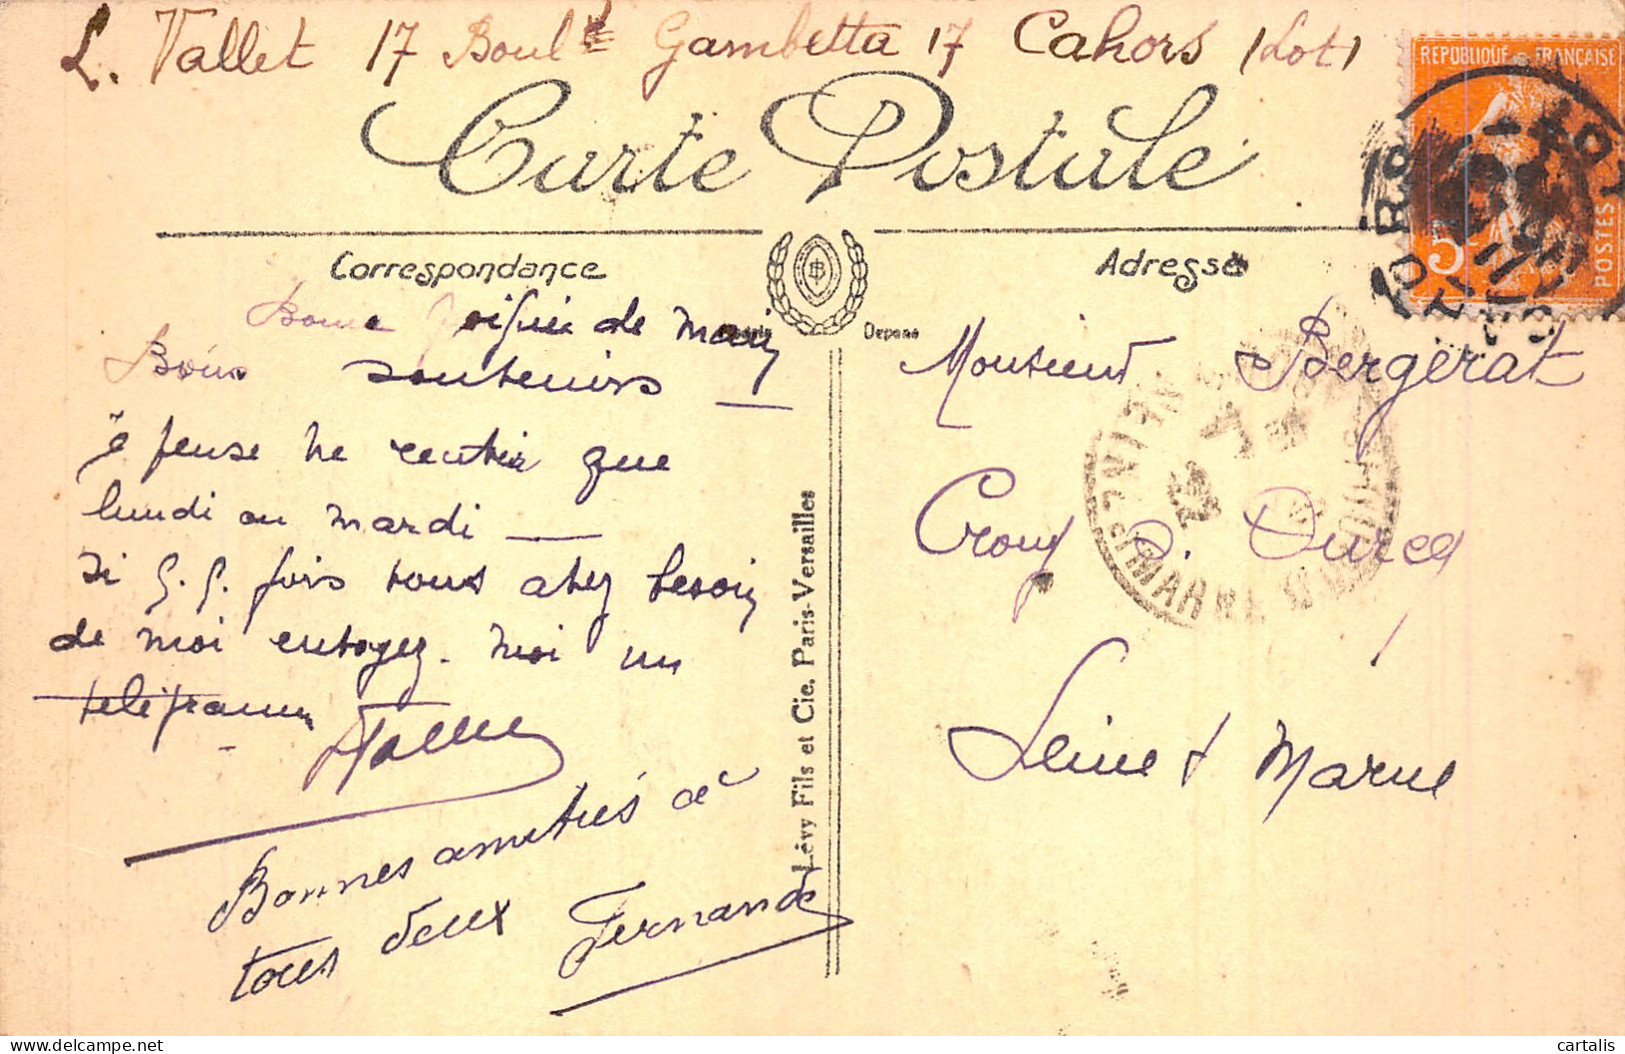 L. Vallet 17 Boul Gambetta 17 Cahors (Lot)
REPUBLIQUE FRANÇAISE
POSTES
5
Carte Postale
Correspondance
Adresse
de
Bons souvenirs
Je pense ne rentrer que
lundi ou mardi
Si fois vous avez besoin
de moi envoyez-moi un
télégramme
Vallet
Bonnes amitiés à
tous deux Fernande
Lévy Fils et Cie. Paris-Versailles
Déposé
Monsieur Bergerat
Crouy s/ Ourcq
Seine & Marne
SEINE ET MARNE
LOT
delcampe.net
cartalis